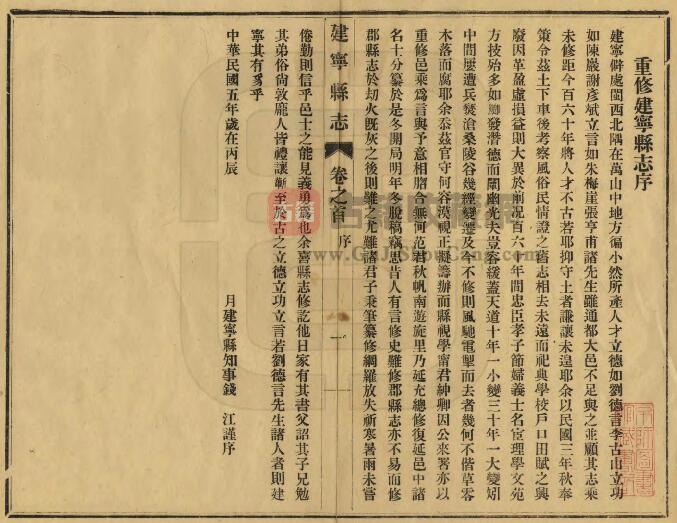 重修建寧縣志序
建寧僻處閩西北隅在萬山中地方褊小然所產人才立德如劉德言李古山立功
如陳巖謝彥斌立言如朱梅崖張亨甫諸先生雖通都大邑不足與之並顧其志乘
未修距今百六十年將人才不古若耶抑守土者謙讓未遑耶余以民國三年秋奉
策令茲土下車後考察風俗民情證之舊志相去未遠而祀典學校戶口田賦之興
廢因革盈虛損益則大異於前況百六十年間忠臣孝子節婦義士名宦理學文苑
方技殆多如鯽發潛德而闡幽光夫豈容緩蓋天道十年一小變三十年一大變矧
中間屢遭兵燹滄桑陵谷幾經變遷及今不修則風馳電掣而去者幾何不偕草零
木落而腐耶余忝茲官守何容漠視正擬籌辦而縣視學甯君紳卿因公來署亦以
重修邑乘為言與予意相脗合無何范君秋帆南遊旋里乃延充總修復延邑中諸
名士分纂於是冬開局明年冬脫稿竊思昔人有言修史難修郡縣志亦不易而修
郡縣志於劫火既灰之後則難之尤難諸君子秉筆纂修網羅放失祈寒暑雨未嘗
建寧縣志
卷之首
序
一
倦勤則信乎邑士之能見義勇為也余喜縣志修訖他日家有其書父詔其子兄勉
其弟俗尚敦龐人皆禮讓蘄至於古之立德立功立言若劉德言先生諸人者則建
寧其有豸乎
中華民國五年歲在丙辰
月建寧縣知事錢 江謹序